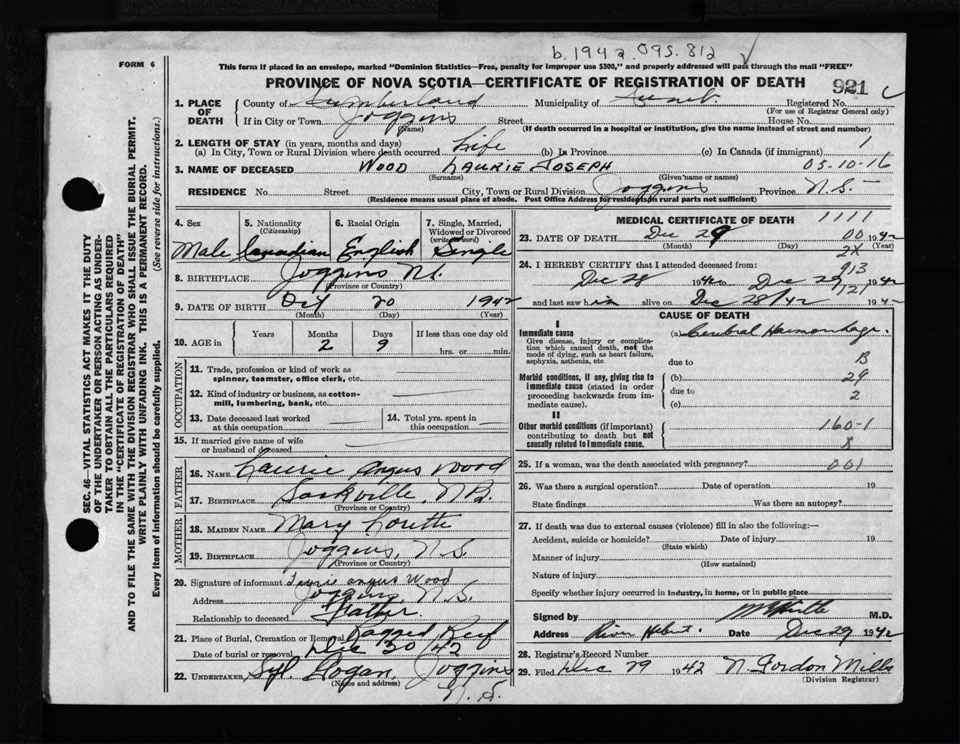 b. 1942. 095. 812
FORM 6
This form if placed in an envelope, marked "Dominion Statistics—Free, penalty for improper use $300," and properly addressed will pass through the mail "FREE"
PROVINCE OF NOVA SCOTIA—CERTIFICATE OF REGISTRATION OF DEATH
921
1. PLACE OF DEATH
County of Cumberland Municipality of Registered No.
(For use of Registrar General only)
If in City or Town Joggins Street House No.
(Name) (If death occurred in a hospital or institution, give the name instead of street and number)
2. LENGTH OF STAY (in years, months and days)
(a) In City, Town or Rural Division where death occurred Life (b) In Province (c) In Canada (if immigrant) 1
3. NAME OF DECEASED WOOD LAURIE JOSEPH 05-10-16
(Surname) (Given name or names)
RESIDENCE No. Street City, Town or Rural Division Joggins Province N.S.
(Residence means usual place of abode. Post Office Address for residents in rural parts not sufficient)
4. Sex 5. Nationality (Citizenship) 6. Racial Origin 7. Single, Married, Widowed or Divorced (write word)
Male Canadian English Single
8. BIRTHPLACE Joggins N.S.
(Province or Country)
9. DATE OF BIRTH Oct 20 1942
(Month) (Day) (Year)
10. AGE in Years Months Days If less than one day old
2 9 hrs. or min.
OCCUPATION
11. Trade, profession or kind of work as spinner, teamster, office clerk, etc.
12. Kind of industry or business, as cotton-mill, lumbering, bank, etc.
13. Date deceased last worked at this occupation
14. Total yrs. spent in this occupation
15. If married give name of wife or husband of deceased
FATHER
16. NAME Laurie Angus Wood
17. BIRTHPLACE Sackville, N.B.
(Province or Country)
MOTHER
18. MAIDEN NAME Mary
19. BIRTHPLACE Joggins, N.S.
(Province or Country)
20. Signature of informant Laurie Angus Wood
Address Joggins, N.S.
Relationship to deceased Father
21. Place of Burial, Cremation or Removal Ragged Reef
Date of burial or removal Dec 30/42
22. UNDERTAKER Syl. Logan, Joggins
(Name and address) N.S.
MEDICAL CERTIFICATE OF DEATH
1111
23. DATE OF DEATH Dec 29 00 1942
(Month) (Day) (Year)
2X
24. I HEREBY CERTIFY that I attended deceased from:
913
Dec 28 1942 to Dec 29 1942
121
and last saw him alive on Dec 28/42 1942
CAUSE OF DEATH
I
Immediate cause (a) Cerebral Haemorrhage.
Give disease, injury or complication which caused death, not the mode of dying, such as heart failure, asphyxia, asthenia, etc.
due to B
Morbid conditions, if any, giving rise to immediate cause (stated in order proceeding backwards from immediate cause).
(b) 29
due to 2
(c)
II
Other morbid conditions (if important) contributing to death but not causally related to immediate cause.
160-1
X
25. If a woman, was the death associated with pregnancy? 001
26. Was there a surgical operation? Date of operation 19
State findings Was there an autopsy?
27. If death was due to external causes (violence) fill in also the following:—
Accident, suicide or homicide? Date of injury 19
(State which)
Manner of injury
(How sustained)
Nature of injury
Specify whether injury occurred in industry, in home, or in public place
Signed by M.D.
Address River Hebert. Date Dec 29 1942
28. Registrar's Record Number
29. Filed Dec 29 1942 N. Gordon Mills
(Division Registrar)
SEC. 46—VITAL STATISTICS ACT MAKES IT THE DUTY
OF THE UNDERTAKER OR PERSON ACTING AS UNDER-
TAKER TO OBTAIN ALL THE PARTICULARS REQUIRED
IN THE "CERTIFICATE OF REGISTRATION OF DEATH"
AND TO FILE THE SAME WITH THE DIVISION REGISTRAR WHO SHALL ISSUE THE BURIAL PERMIT.
WRITE PLAINLY WITH UNFADING INK. THIS IS A PERMANENT RECORD.
Every item of information should be carefully supplied. (See reverse side for instructions.)